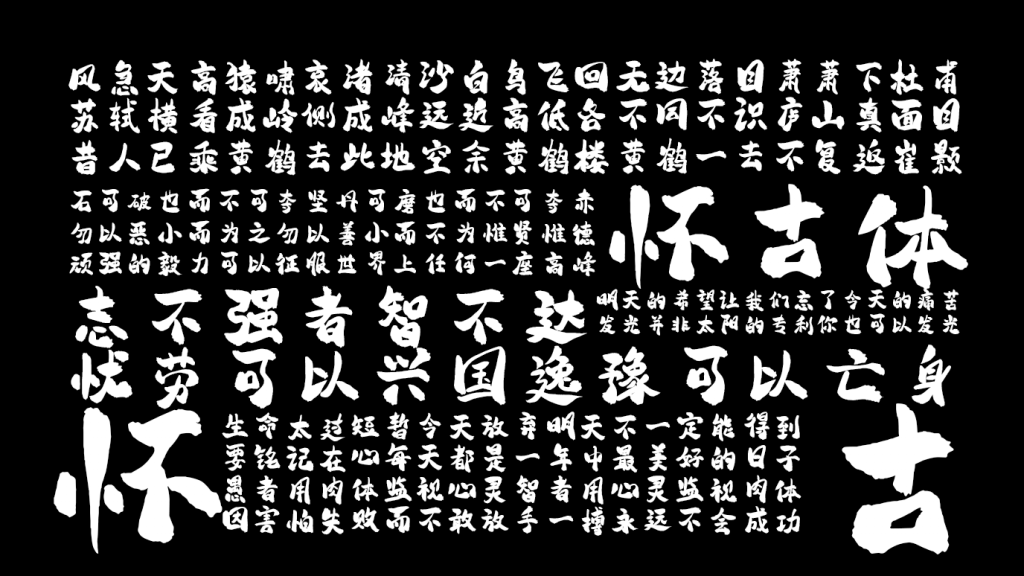 风急天高猿啸哀渚清沙白鸟飞回无边落目萧萧下杜甫
苏轼横看成岭侧成峰远近高低各不同不识庐山真面目
昔人已乘黄鹤去此地空余黄鹤楼黄鹤一去不复返崔颢
石可破也而不可夺坚丹可磨也而不可夺赤
勿以恶小而为之勿以善小而不为惟贤惟德
顽强的毅力可以征服世界上任何一座高峰
怀古体
志不强者智不达
明天的希望让我们忘了今天的痛苦
发光并非太阳的专利你也可以发光
忧劳可以兴国逸豫可以亡身
怀
生命太过短暂今天放弃明天不一定能得到
要铭记在心每天都是一年中最美好的日子
愚者用肉体监视心灵智者用心灵监视肉体
因害怕失败而不敢放手一搏永远不会成功
古